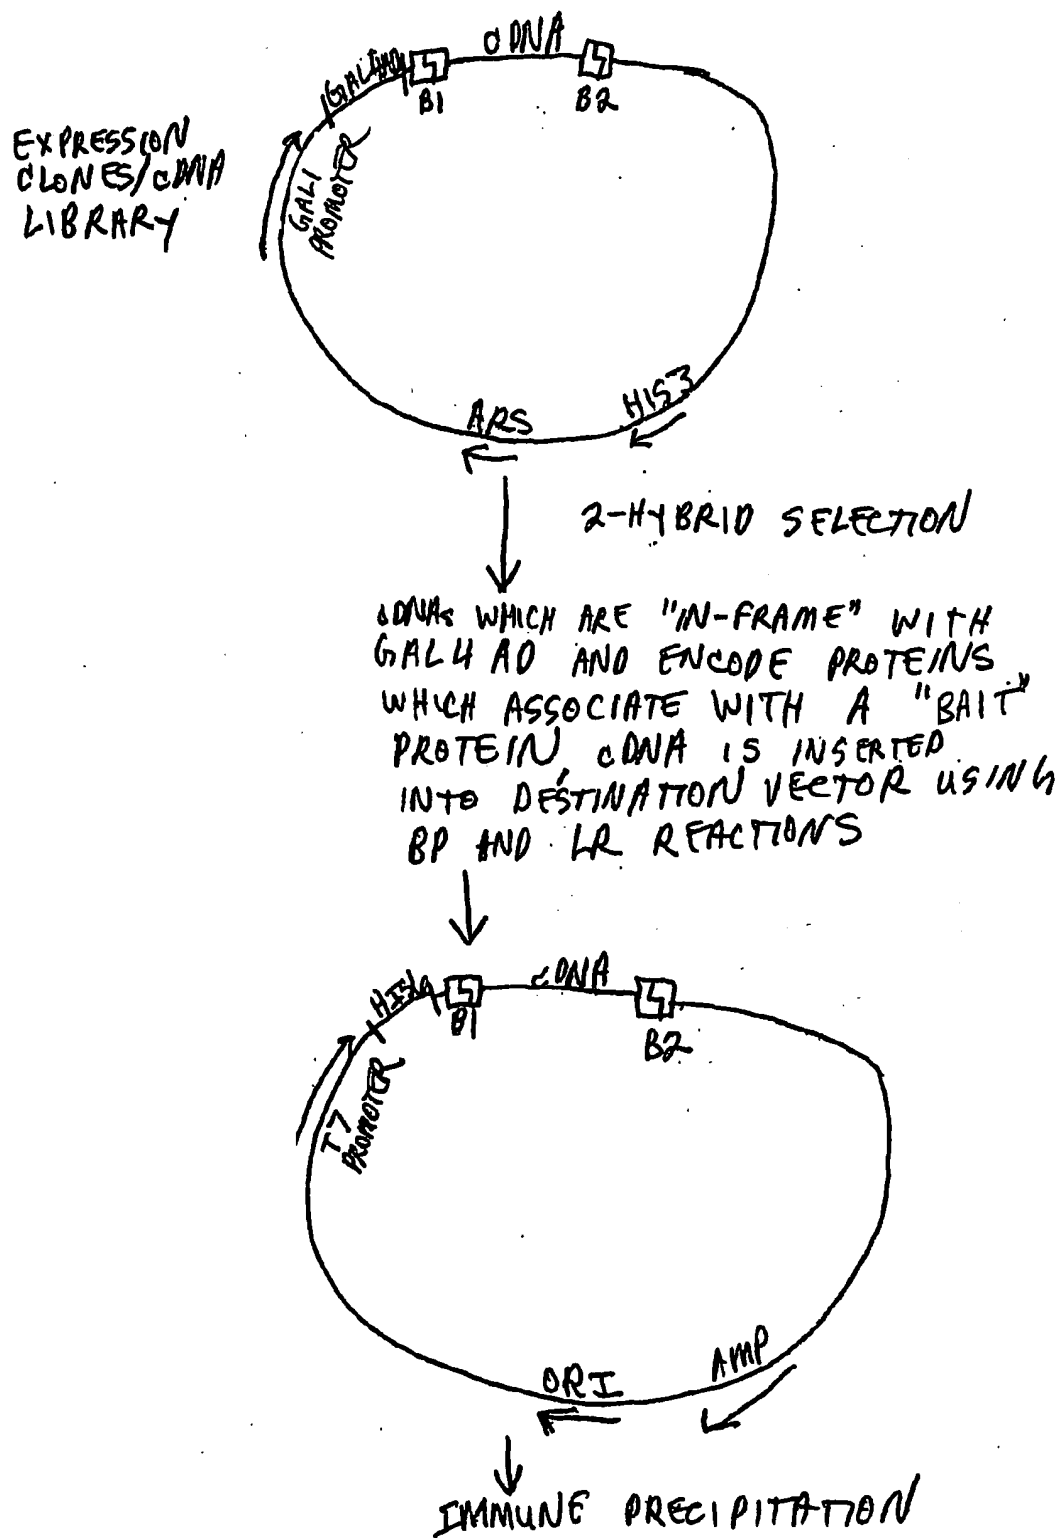 cDNA
GAL4AD
B1
B2
EXPRESSION
CLONES/cDNA
LIBRARY
GAL1
PROMOTER
ARS
HIS3
2-HYBRID SELECTION
cDNAs WHICH ARE "IN-FRAME" WITH
GAL4 AD AND ENCODE PROTEINS
WHICH ASSOCIATE WITH A "BAIT"
PROTEIN, cDNA IS INSERTED
INTO DESTINATION VECTOR USING
BP AND LR REACTIONS
cDNA
HIS6
B1
B2
T7
PROMOTER
ORI
AMP
IMMUNE PRECIPITATION